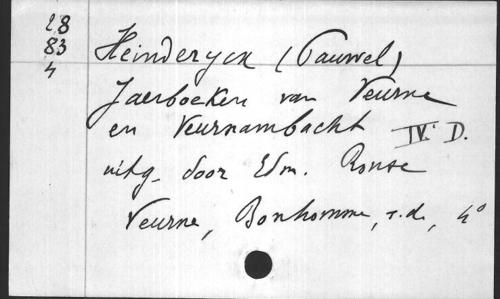 28
83
4
Heinderyck (Pauwel)
Jaerboeken van Veurne
en Veurnambacht IV D.
uitg. door Edm. Ronse
Veurne, Bonhomme, s.d., 4°